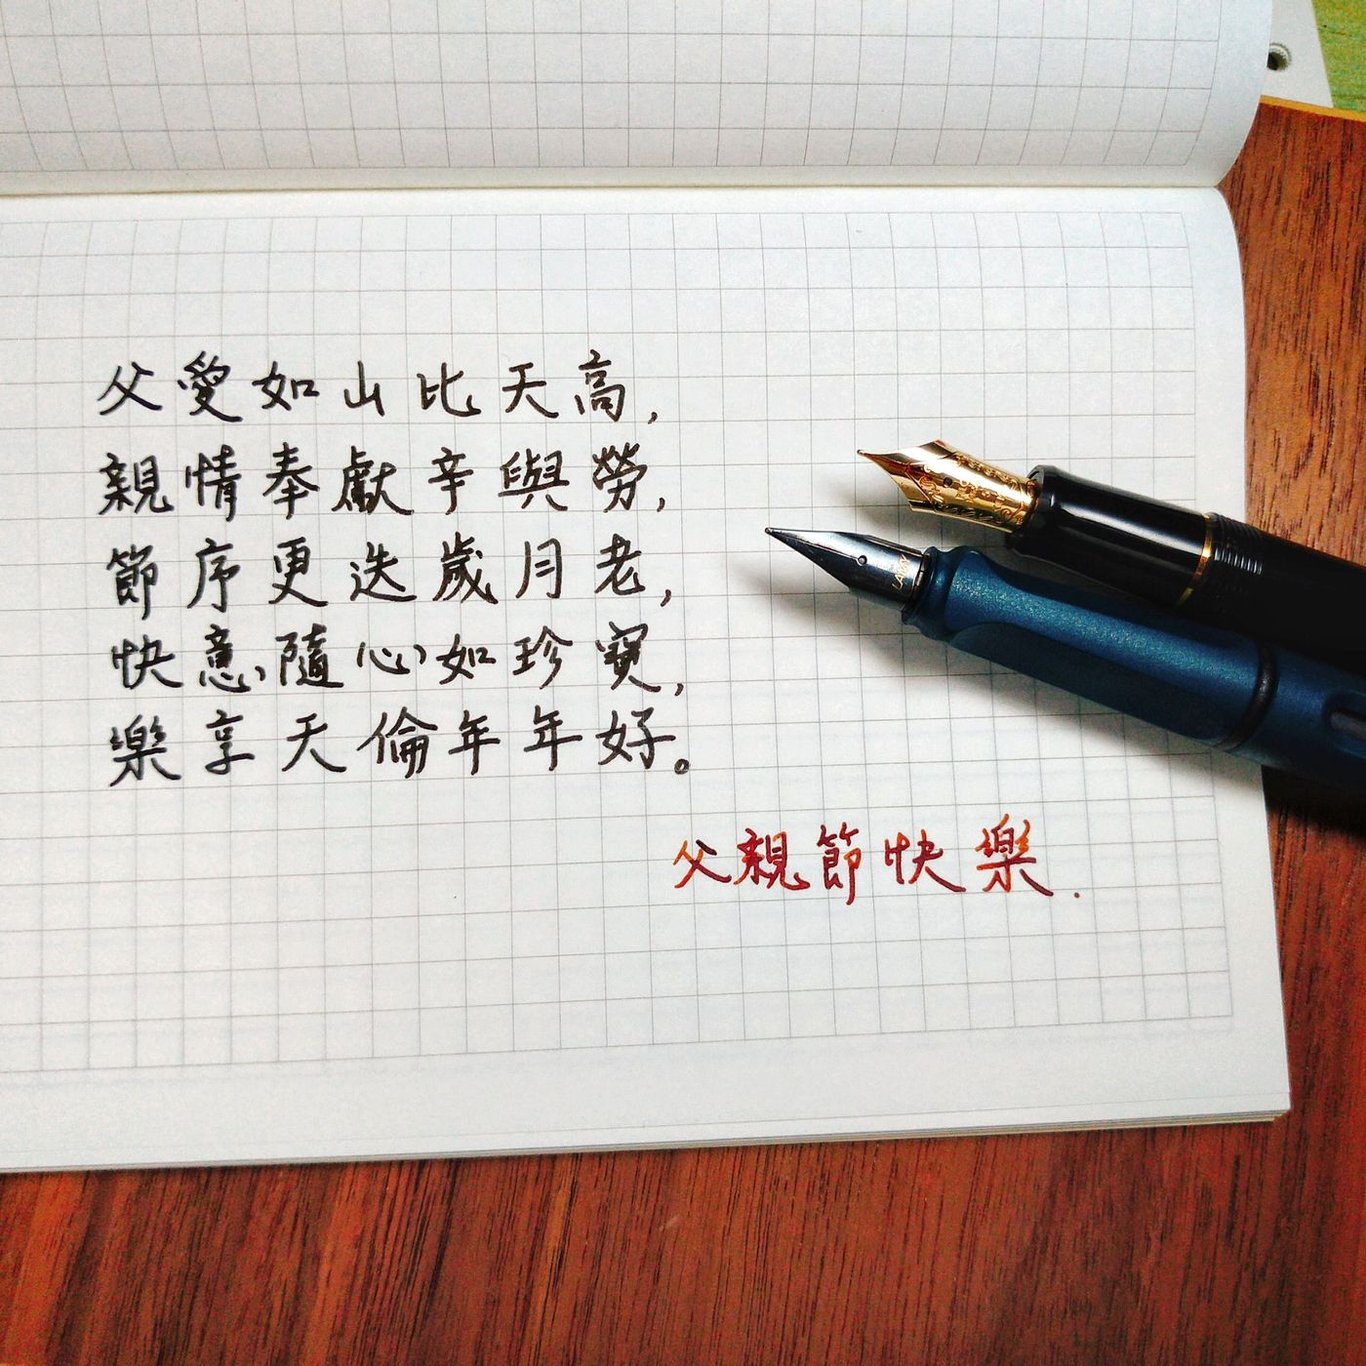 父愛如山比天高,
親情奉獻辛與勞,
節序更迭歲月老,
快意隨心如珍寶,
樂享天倫年年好。
父親節快樂.
LAMY